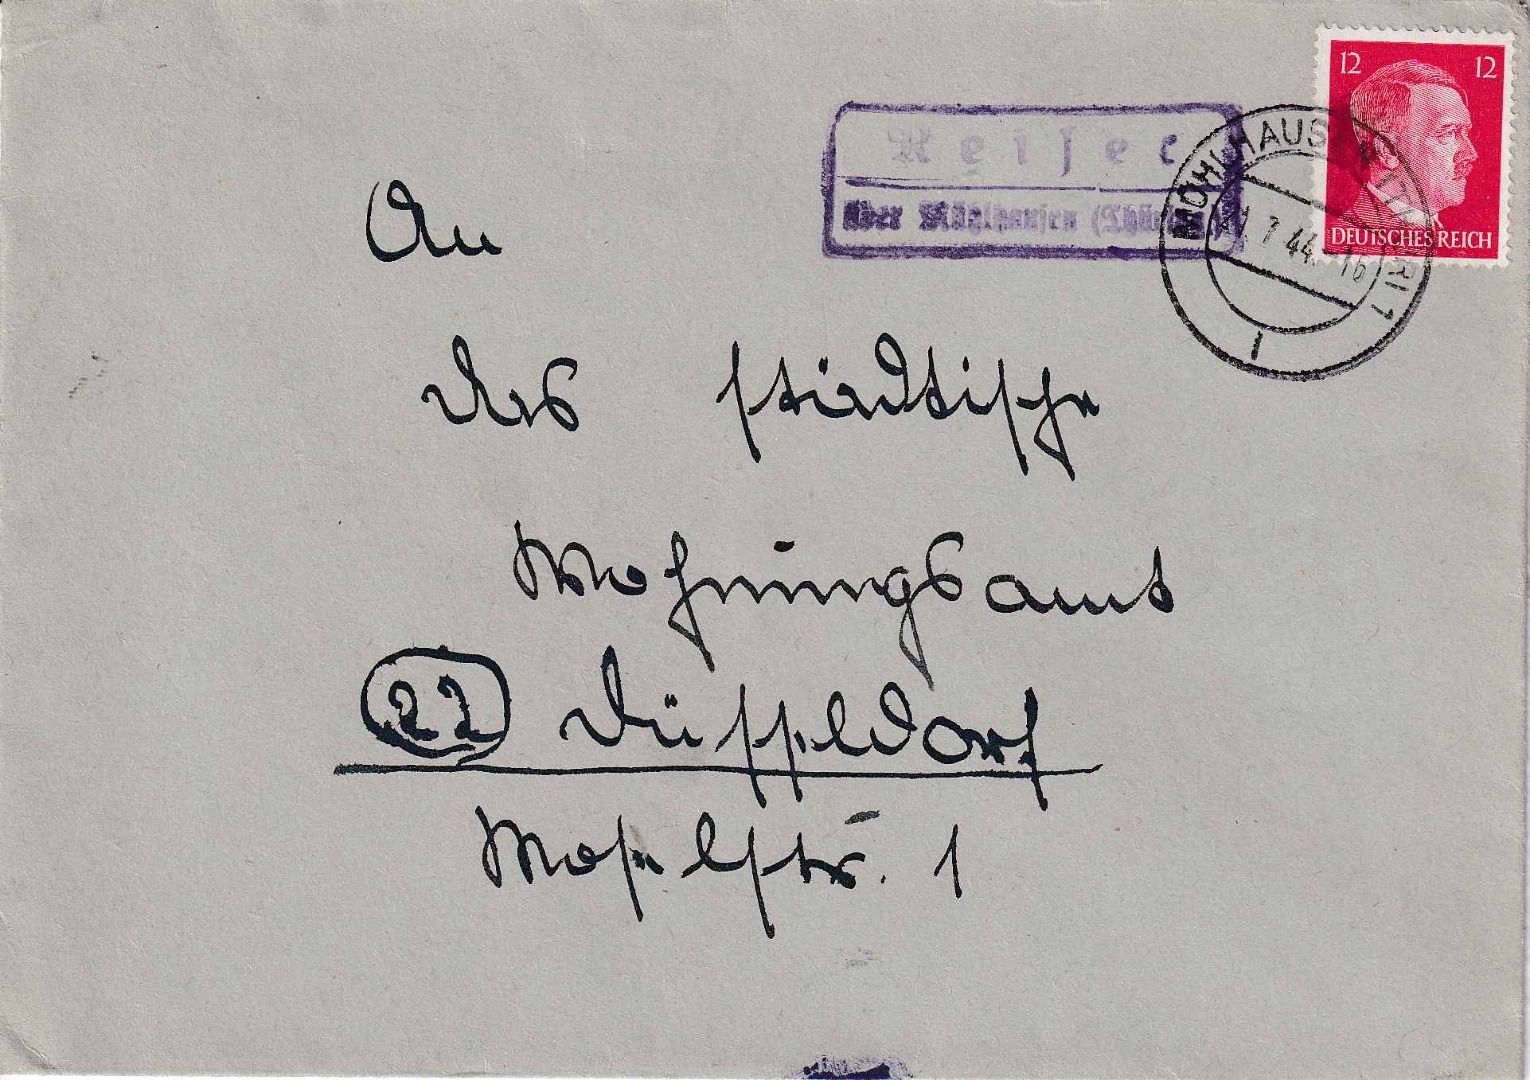 12 12
DEUTSCHES REICH
Reiser
über Mühlhausen (Thüring)
MÜHLHAUSEN (THÜR) 1
1.7.44.-16
l
An
das städtische
Wohnungsamt
22 Düsseldorf
Moselstr. 1